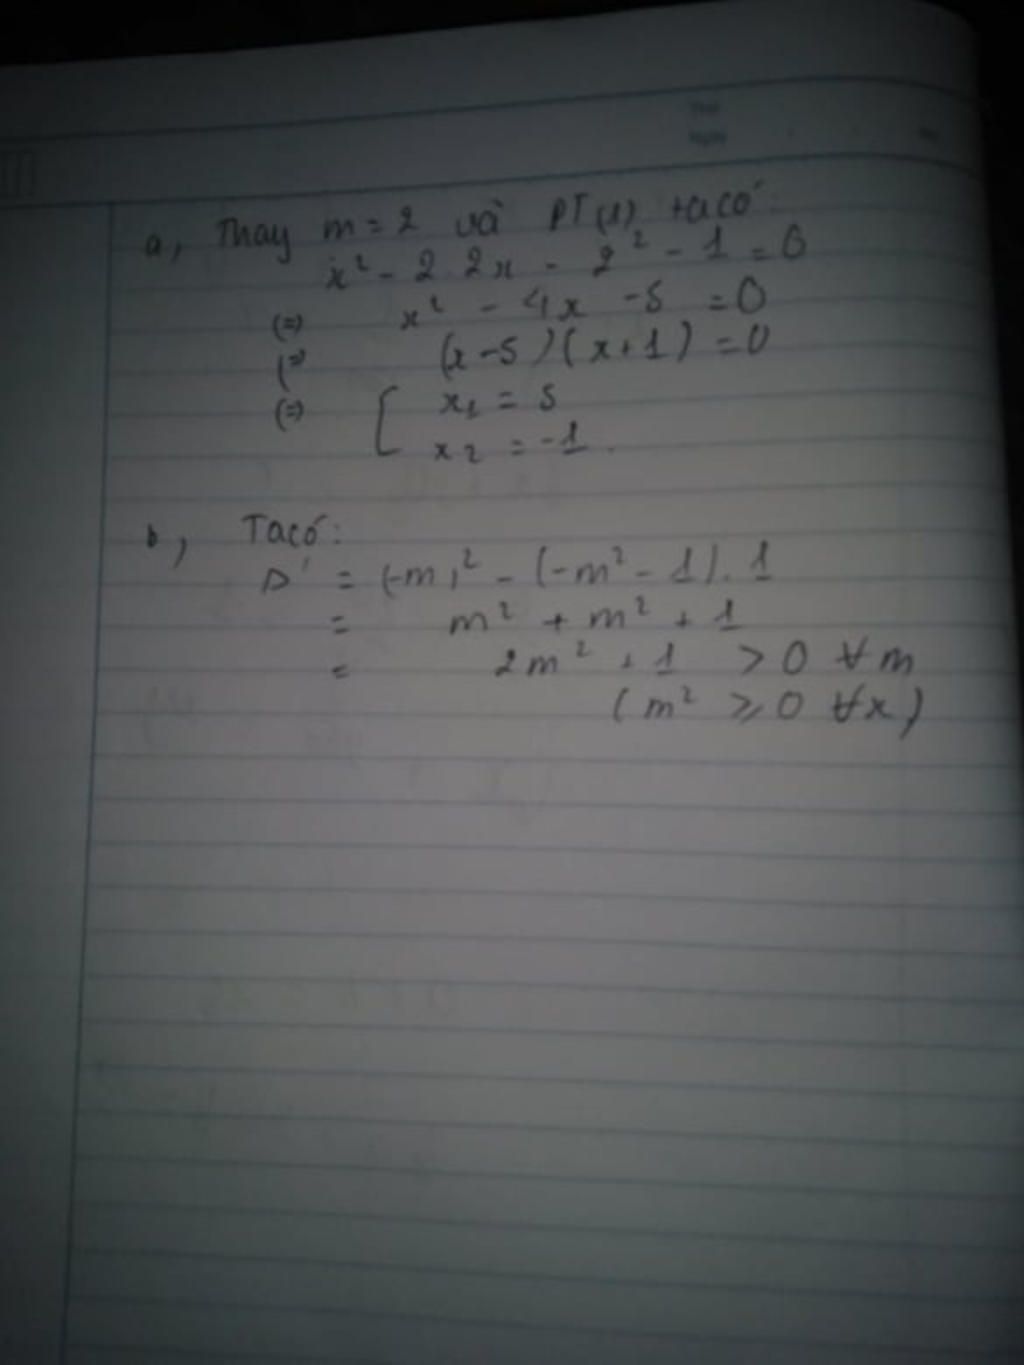 a, Thay m = 2 và PT(1) ta có:
x² - 2.2x - 2² - 1 = 0
(=) x² - 4x - 5 = 0
(=) (x - 5)(x + 1) = 0
(=) [ x₁ = 5
x₂ = -1.
b, Ta có:
Δ' = (-m)² - (-m² - 1). 1
= m² + m² + 1
= 2m² + 1 > 0 ∀m
(m² ⩾ 0 ∀x)